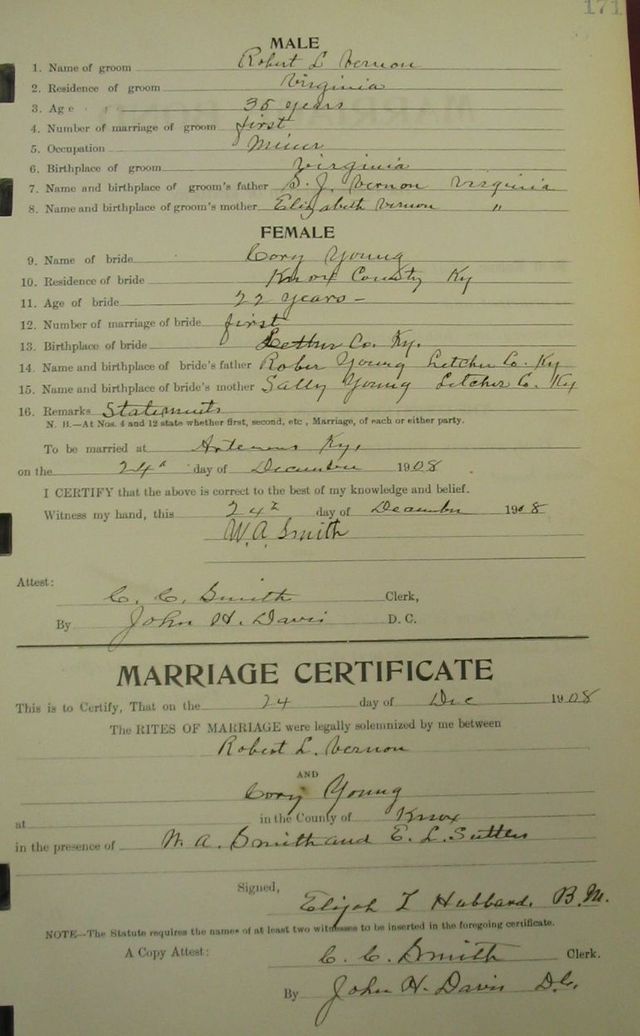 171
MALE
1. Name of groom Robert L Vernon
2. Residence of groom Virginia
3. Age 35 years
4. Number of marriage of groom first
5. Occupation Miner
6. Birthplace of groom Virginia
7. Name and birthplace of groom's father S. J. Vernon Virginia
8. Name and birthplace of groom's mother Elizabeth Vernon "
FEMALE
9. Name of bride Cory Young
10. Residence of bride Knox County Ky
11. Age of bride 22 years –
12. Number of marriage of bride first
13. Birthplace of bride Letcher Co. Ky.
14. Name and birthplace of bride's father Rober Young Letcher Co. Ky
15. Name and birthplace of bride's mother Sally Young Letcher Co. Ky
16. Remarks Statements
N. B.—At Nos. 4 and 12 state whether first, second, etc., Marriage, of each or either party.
To be married at Artemus Ky,
on the 24 day of December 1908
I CERTIFY that the above is correct to the best of my knowledge and belief.
Witness my hand, this 24 day of December 1908
W. A. Smith
Attest:
C. C. Smith Clerk,
By John H. Davis D. C.
MARRIAGE CERTIFICATE
This is to Certify, That on the 24 day of Dec 1908
The RITES OF MARRIAGE were legally solemnized by me between
Robert L. Vernon
AND
Cory Young
at in the County of Knox
in the presence of W. A. Smith and E. L.
Signed,
Elijah T Hubbard, B.M.
NOTE—The Statute requires the names of at least two witnesses to be inserted in the foregoing certificate.
A Copy Attest: C. C. Smith Clerk.
By John H. Davis D.C.